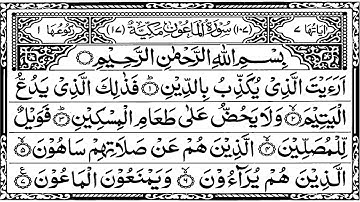 اٰیاتها ۷ (۱۰۷) سُوْرَةُ الْمَاعُوْنَ مَكِّيَّةٌ (۱۷) رکوعها ۱
بِسْمِ اللّٰهِ الرَّحْمٰنِ الرَّحِيْمِ
اَرَءَيْتَ الَّذِىْ يُكَذِّبُ بِالدِّيْنِ ۱ فَذٰلِكَ الَّذِىْ يَدُعُّ
الْيَتِيْمَ ۲ وَلَا يَحُضُّ عَلٰى طَعَامِ الْمِسْكِيْنِ ۳ فَوَيْلٌ
لِّلْمُصَلِّيْنَ ۴ الَّذِيْنَ هُمْ عَنْ صَلَاتِهِمْ سَاهُوْنَ ۵
الَّذِيْنَ هُمْ يُرَآءُوْنَ ۶ وَيَمْنَعُوْنَ الْمَاعُوْنَ ۷